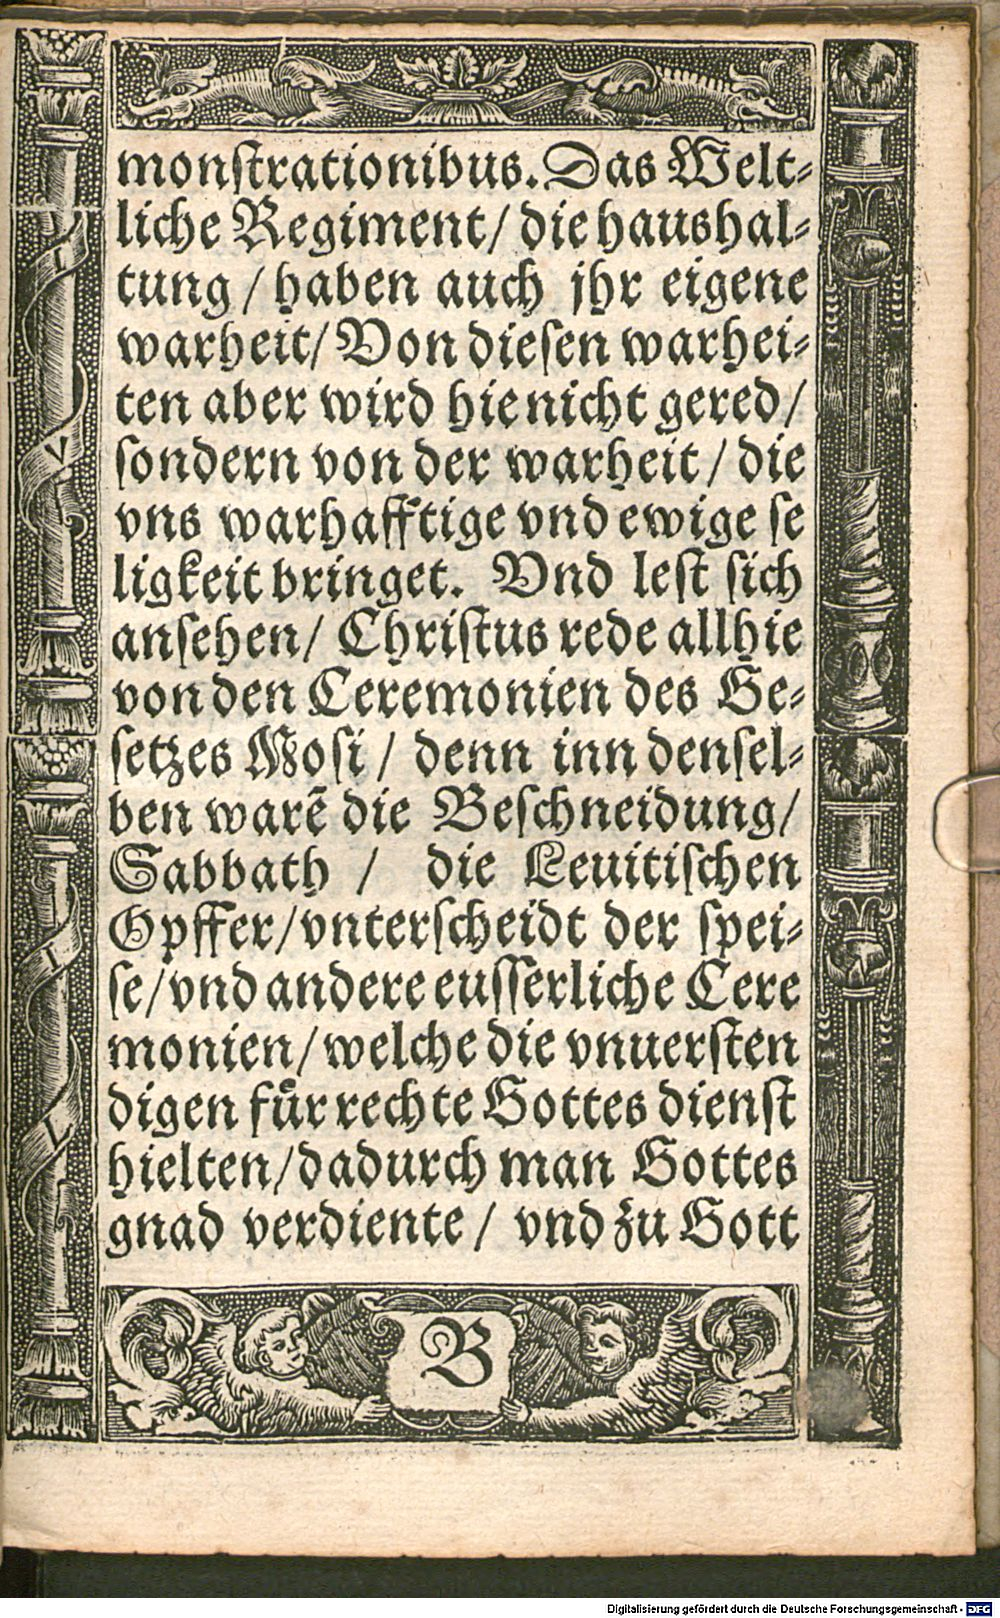 monſtrationibus. Das Welt⸗
liche Regiment/ die haushal⸗
tung / haben auch jhr eigene
warheit/ Von dieſen warhei⸗
ten aber wird hie nicht gered/
ſondern von der warheit / die
vns warhafftige vnd ewige ſe
ligkeit bringet. Vnd leſt ſich
anſehen/ Chriſtus rede allhie
von den Ceremonien des Ge⸗
ſetzes Moſi / denn inn denſel⸗
ben warẽ die Beſchneidung/
Sabbath / die Leuitiſchen
Opffer/vnterſcheidt der ſpei⸗
ſe/vnd andere euſſerliche Cere
monien/welche die vnuerſten
digen fuͤr rechte Gottes dienſt
hielten/dadurch man Gottes
gnad verdiente / vnd zu Gott
B
I
V
I
L
Digitalisierung gefördert durch die Deutsche Forschungsgemeinschaft - DFG